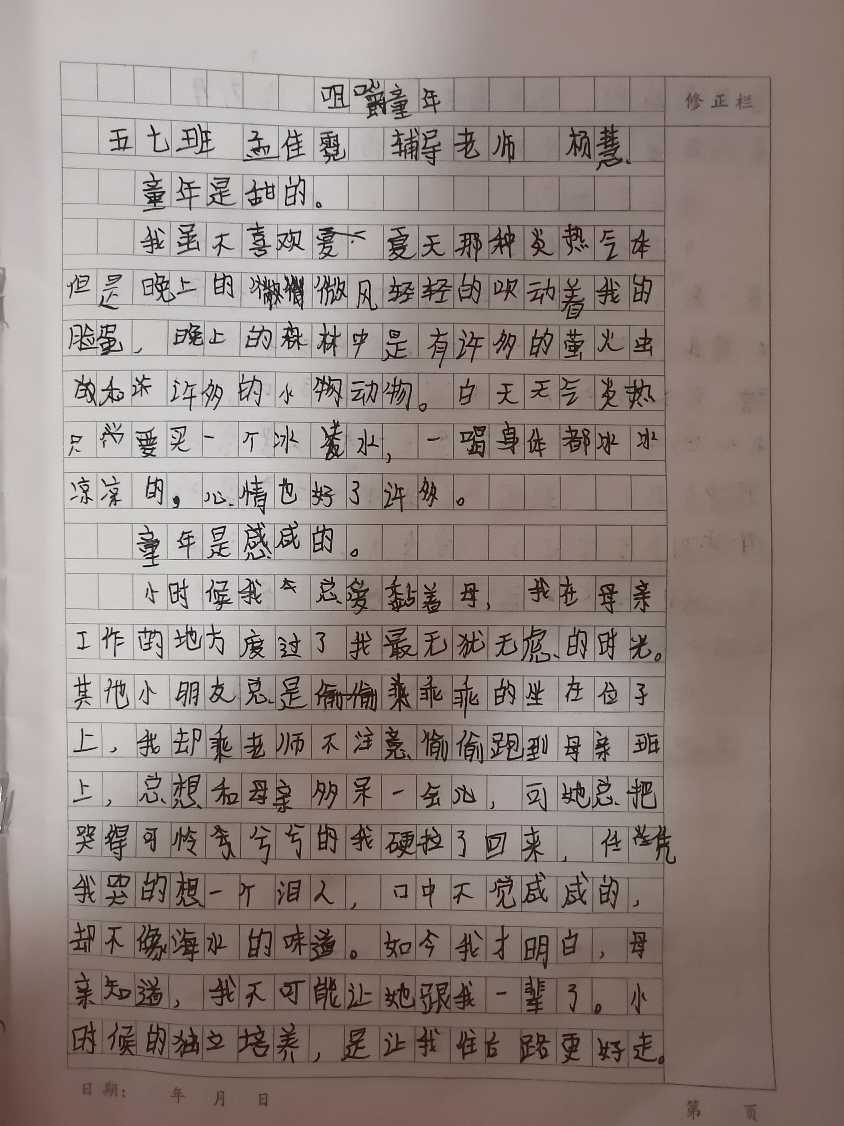 咀嚼童年
修正栏
五七班 孟佳霓 辅导老师 杨慧
童年是甜的。
我虽不喜欢夏天那种炎热气体
但是晚上的微风轻轻的吹动着我的
脸蛋，晚上的森林中是有许多的萤火虫
和许多的小物动物。白天天气炎热
只要买一个冰凌水，一喝身体都冰冰
凉凉的，心情也好了许多。
童年是咸的。
小时候我总爱黏着母，我在母亲
工作的地方度过了我最无犹无虑的时光。
其他小朋友总是乖乖的坐在位子
上，我却乘老师不注意偷偷跑到母亲班
上，总想和母亲多呆一会儿，可她总把
哭得可怜兮兮的我硬拉了回来，任凭
我哭的想一个泪人，口中不觉咸咸的，
却不像海水的味道。如今我才明白，母
亲知道，我不可能让她跟我一辈了。小
时候的独立培养，是让我往后路更好走。
日期： 年 月 日
第 页